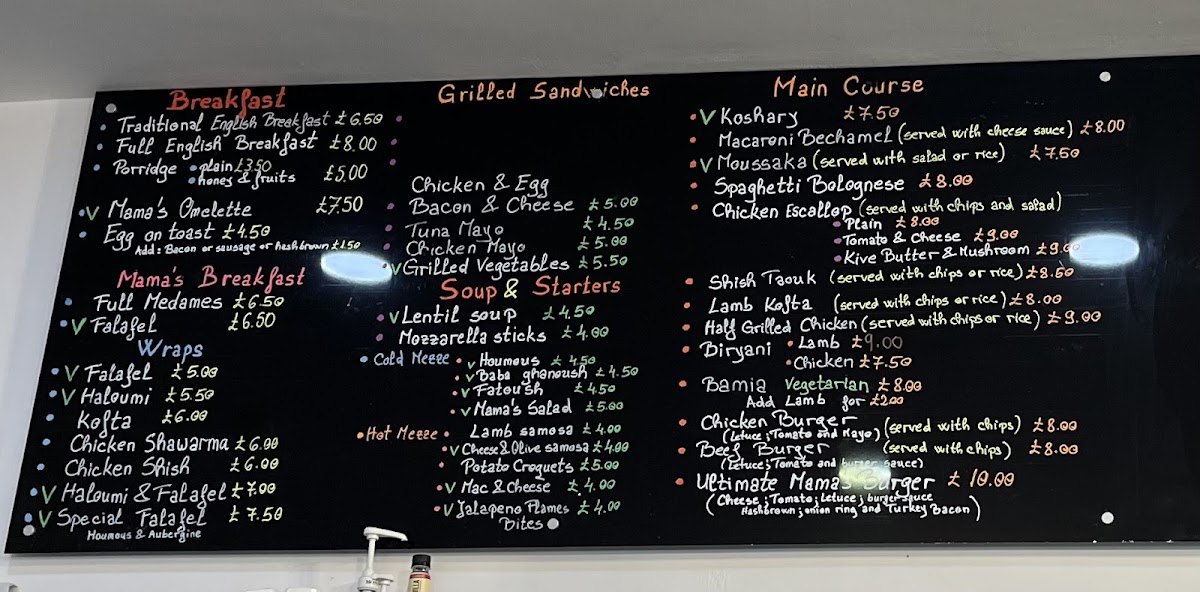 Breakfast
Traditional English Breakfast £6.50
Full English Breakfast £8.00
Porridge • plain £3.50
• honey & fruits £5.00
V Mama's Omelette £7.50
Egg on toast £4.50
Add: Bacon or sausage or hashbrown £1.50
Mama's Breakfast
Full Medames £6.50
V Falafel £6.50
Wraps
V Falafel £5.00
V Haloumi £5.50
Kofta £6.00
Chicken Shawarma £6.00
Chicken Shish £6.00
V Haloumi & Falafel £7.00
V Special Falafel £7.50
Houmous & Aubergine
Grilled Sandwiches
Chicken & Egg
Bacon & Cheese £5.00
Tuna Mayo £4.50
Chicken Mayo £5.00
V Grilled Vegetables £5.50
Soup & Starters
V Lentil soup £4.50
Mozzarella sticks £4.00
• Cold Mezze • V Houmous £4.50
V Baba ghanoush £4.50
V Fatoush £4.50
V Mama's Salad £5.00
• Hot Mezze • Lamb samosa £4.00
V Cheese & Olive samosa £4.00
Potato Croquets £5.00
V Mac & Cheese £4.00
V Jalapeno Flames £4.00
Bites
Main Course
V Koshary £7.50
Macaroni Bechamel (served with cheese sauce) £8.00
V Moussaka (served with salad or rice) £7.50
Spaghetti Bolognese £8.00
Chicken Escallop (served with chips and salad)
• Plain £8.00
• Tomato & Cheese £9.00
• Kive Butter & Mushroom £9.00
Shish Taouk (served with chips or rice) £8.50
Lamb Kofta (served with chips or rice) £8.00
Half Grilled Chicken (served with chips or rice) £9.00
Biryani • Lamb £9.00
• Chicken £7.50
Bamia Vegetarian £8.00
Add Lamb for £2.00
Chicken Burger (served with chips) £8.00
(Letuce ; Tomato and Mayo)
Beef Burger (served with chips) £8.00
(Letuce ; Tomato and burger sauce)
Ultimate Mama's Burger £10.00
(Cheese ; Tomato ; Letuce ; burger sauce
Hashbrown ; onion ring and Turkey Bacon)